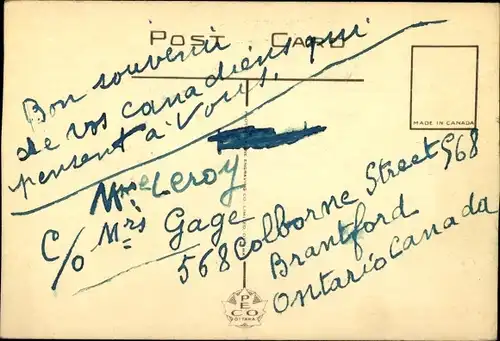 POST CARD
Bon souvenir
de vos canadiens qui
pensent à vous.
MADE IN CANADA
Mme Leroy
c/o Mrs Gage
568 Colborne Street 568
Brantford
Ontario Canada
PECO
OTTAWA